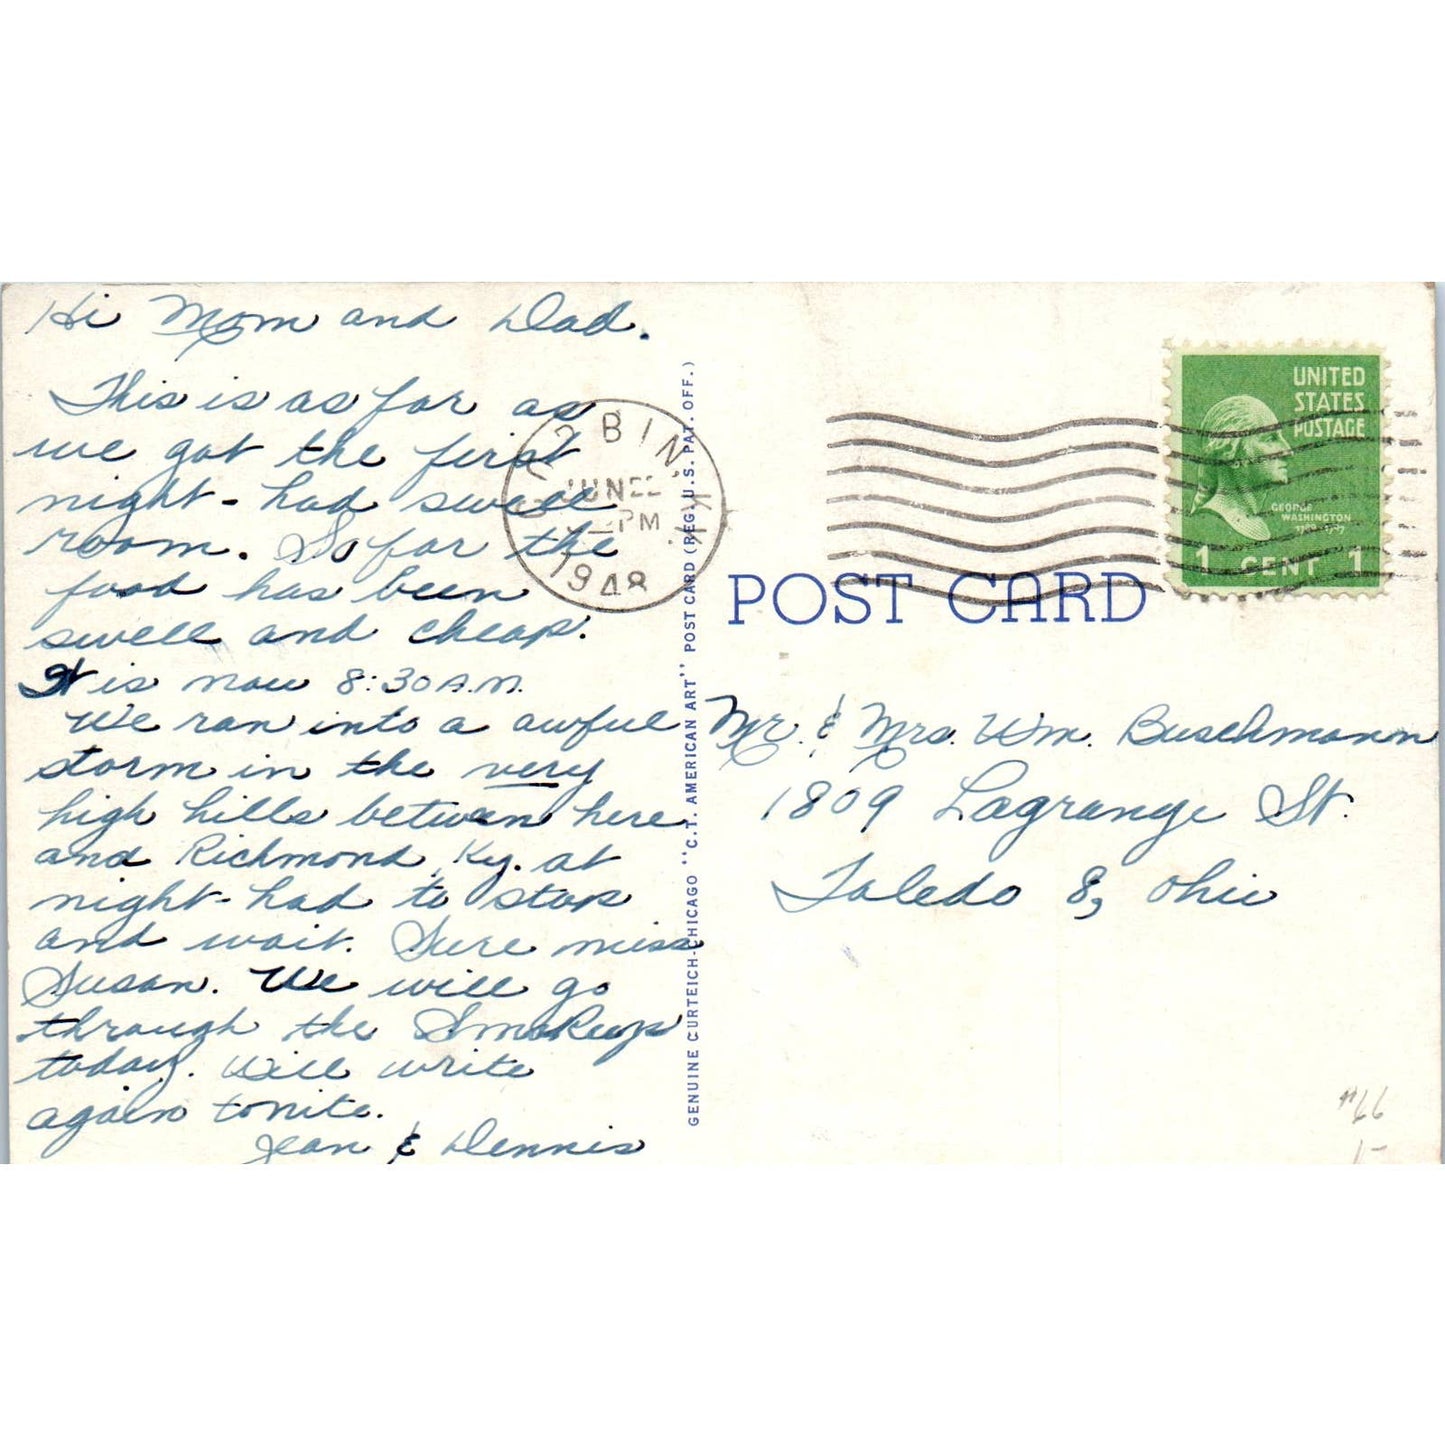 Hi Mom and Dad.
This is as far as
we got the first
night - had swell
room. So far the
food has been
swell and cheap.
It is now 8:30 A.M.
We ran into a awful
storm in the very
high hills between here
and Richmond, Ky. at
night - had to stop
and wait. Sure miss
Susan. We will go
through the Smokeys
today. Will write
again tonite.
Jean & Dennis
CORBIN, KY.
JUN 22
PM
1948
GENUINE CURTEICH-CHICAGO "C.T. AMERICAN ART" POST CARD (REG. U.S. PAT. OFF.)
POST CARD
UNITED
STATES
POSTAGE
GEORGE
WASHINGTON
1 CENT 1
Mr. & Mrs. Wm. Buschmann
1809 Lagrange St.
Toledo 8, Ohio
#66
1-